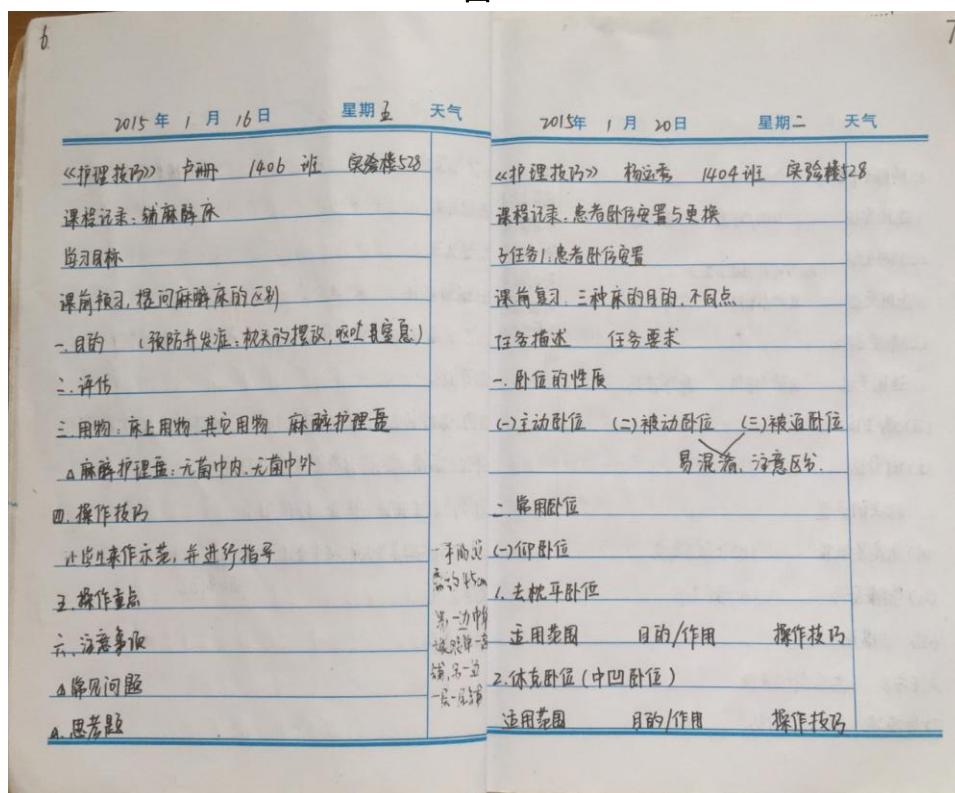 6
2015年 1月 16日 星期五 天气
《护理技巧》 卢珊 1406 班 实验楼528
课程记录:铺麻醉床
学习目标
课前预习,提问麻醉床的区别
一.目的 (预防并发症:枕头的摆放,呕吐致窒息)
二.评估
三.用物:床上用物 其它用物 麻醉护理盘
△麻醉护理盘:无菌巾内、无菌巾外
四.操作技巧
让学生来作示范,并进行指导
五.操作重点
六.注意事项
△常见问题
思考题
45cm
另一边中单
7
2015年 1月 20日 星期二 天气
《护理技巧》 杨远秀 1404班 实验楼528
课程记录:患者卧位安置与更换
子任务1:患者卧位安置
课前复习,三种床的目的,不同点
任务描述 任务要求
一.卧位的性质
(一)主动卧位 (二)被动卧位 (三)被迫卧位
易混淆,注意区分.
二.常用卧位
(一)仰卧位
1.去枕平卧位
适用范围 目的/作用 操作技巧
2.休克卧位(中凹卧位)
适用范围 目的/作用 操作技巧